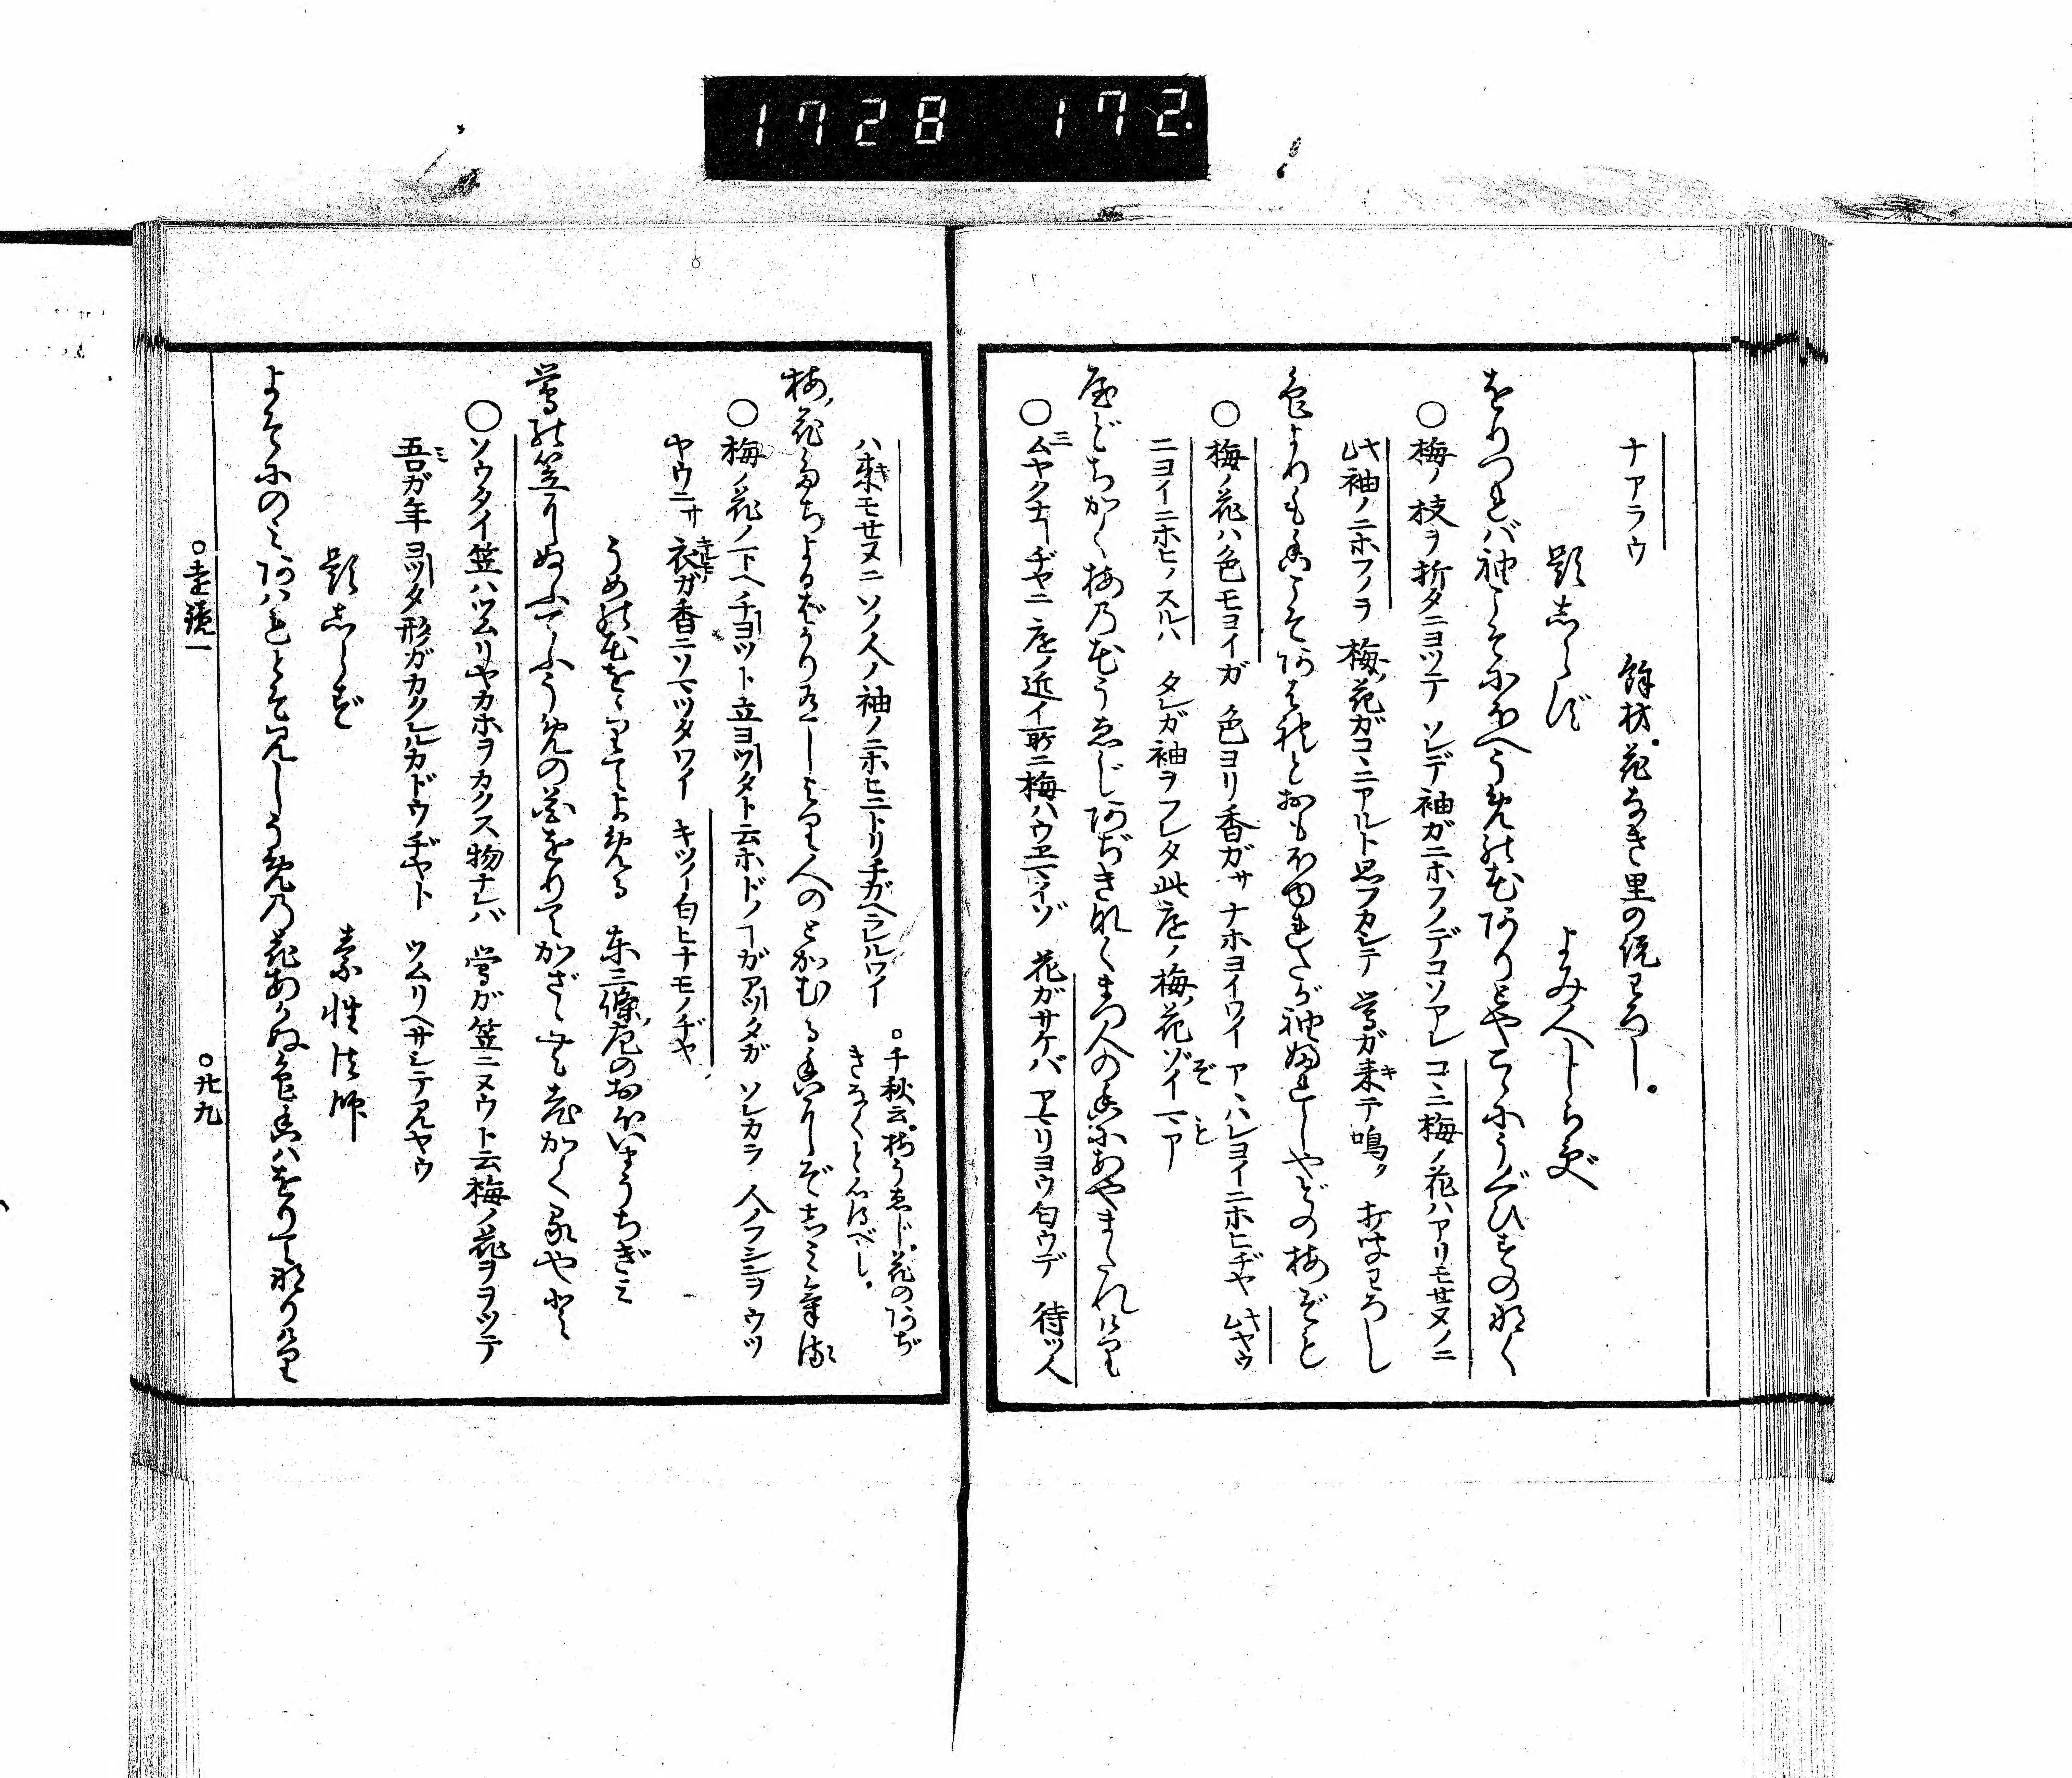 1728 172.
ナアラウ 餘材花なき里の説わろし。
題しらず よみ人しらず
をりつれバ袖こそにほへうめの花ありとやこゝにうぐひすの鳴く
○梅ノ枝ヲ折タニヨツテ ソレデ袖ガニホフノデコソアレ コヽニ梅ノ花ハアリモセヌノニ
此袖ノニホフノヲ 梅ノ花ガコヽニアルト思フカシテ 鶯ガ来テ鳴ク 打聞わろし
色よりも香こそあはれとおもほゆれたが袖ふれしやどの梅ぞも
○梅ノ花ハ色モヨイガ 色ヨリ香ガサ ナホヨイワイ アヽハレヨイニホヒヂヤ 此ヤウ
ニヨイニホヒノスルハ タレガ袖ヲフレタ此庭ノ梅ノ花ゾイマア
屋どちかく梅の花うゑじあぢきなくまつ人の香にあやまたれけり
○ムヤクナヿヂヤニ 庭ノ近イ所ニ梅ハウヱマイゾ 花ガサケバ アマリヨウ匂ウデ 待ツ人
ハ来モセヌニ ソノ人ノ袖ノニホヒニトリチガヘラレルワイ ○千秋云、梅うゑじ花のあぢ
きなくと心得べし。
梅花たちよるばかりありしより人のとがむる香にぞしみぬる
○梅ノ花ノ下ヘチヨツト立ヨツタト云ホドノヿガアツタガ ソレカラ 人ノフシンヲウツ
ヤウニサ 衣ガ香ニソマツタワイ キツイ匂ヒナモノヂヤ
うめの花ををりてよめる 東三條ノ左のおほいまうちぎミ
鶯の笠にぬふてふうめの花をりてかざゝむ老かくるやと
○ソウタイ笠ハツムリヤカホヲカクス物ナレバ 鶯ガ笠ニヌウト云梅ノ花ヲヲツテ
吾ガ年ヨツタ形ガカクレルカドウヂヤト ツムリヘサシテ見ヤウ
題しらず 素性法師
よそにのミあはれとぞ見しうめの花あかぬ色香ハをりてなりけり
○遠鏡一 ○廿九